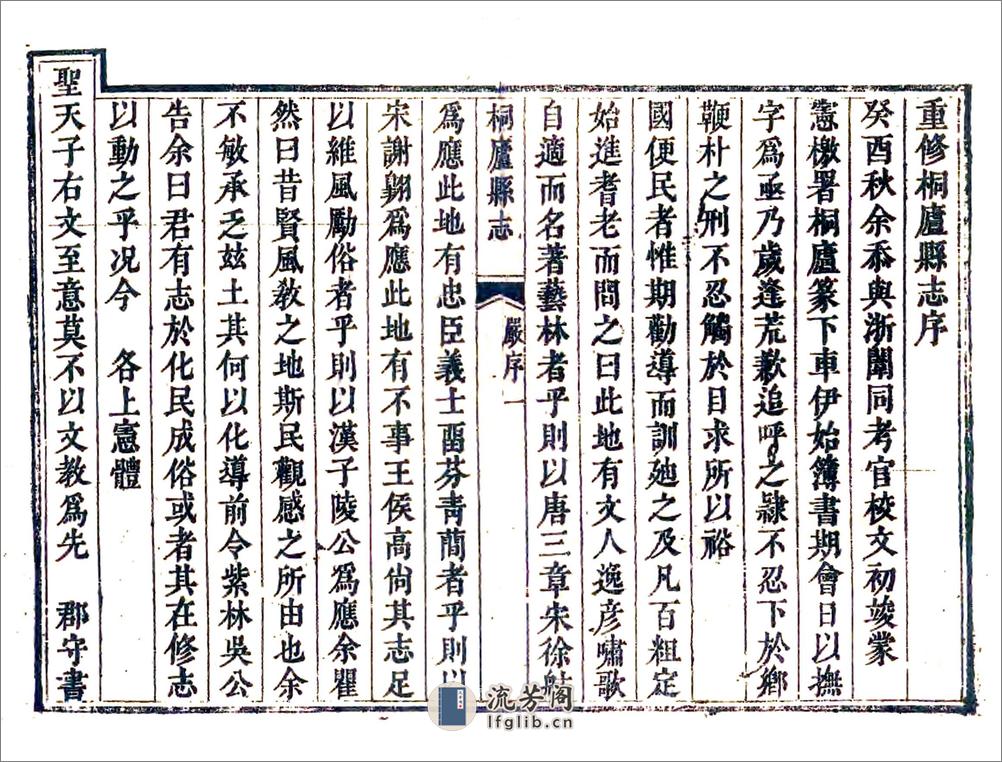 重修桐廬縣志序
癸酉秋余忝與浙闈同考官校文初竣蒙
憲檄署桐廬篆下車伊始簿書期會日以撫
字爲亟乃歲逢荒歉追呼之隸不忍下於鄉
鞭朴之刑不忍觸於目求所以裕
國便民者惟期勸導而訓廸之及凡百粗定
始進耆老而問之曰此地有文人逸彥嘯歌
自適而名著藝林者乎則以唐三章宋徐
桐廬縣志 嚴序 一
爲應此地有忠臣義士畱芬靑蕳者乎則以
宋謝翶爲應此地有不事王侯高尙其志足
以維風勵俗者乎則以漢子陵公爲應余瞿
然曰昔賢風敎之地斯民觀感之所由也余
不敏承乏玆土其何以化導前令紫林吳公
告余曰君有志於化民成俗或者其在修志
以動之乎况今 各上憲體
聖天子右文至意莫不以文教爲先 郡守書
流芳阁
lfglib.cn